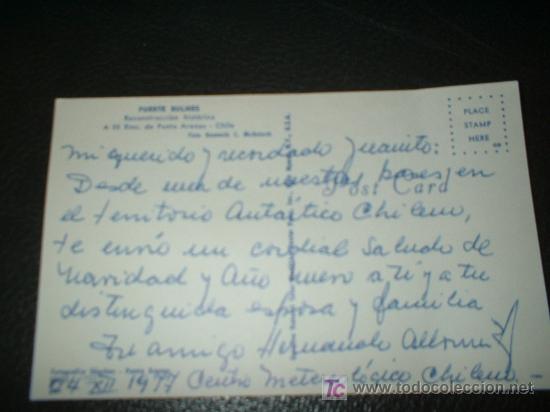 FUERTE BULNES
Reconstrucción histórica
A 55 Kms. de Punta Arenas - Chile
PLACE
STAMP
HERE
Post Card
Mi querido y recordado Juanito:
Desde una de nuestras bases en
el territorio Antártico Chileno,
te envío un cordial saludo de
Navidad y Año nuevo a ti y a tu
distinguida esposa y familia
Tu amigo Hernando
24 XII 1977 Centro Meteorológico Chileno
todocoleccion